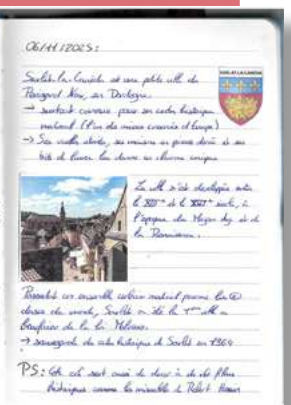 06/11/2025:
SARLAT-LA-CANÉDA
Sarlat-la-Canéda est une petite ville du
Périgord Noir, en Dordogne.
→ surtout connue pour son centre historique
médiéval (l'un des mieux conservés d'Europe)
→ Ses ruelles étroites, ses maisons en pierre dorée et ses
toits de lauze lui donne un charme unique
La ville s'est développée entre
le XIIIe et le XVIe siècle, à
l'époque du Moyen Âge et de
la Renaissance.
Possédait un ensemble urbain médiéval parmi les
du monde, Sarlat a été la 1ère ville a
bénéficier de la loi Malraux.
→ sauvegarde du centre historique de Sarlat en 1964
PS: ville est aussi de décor à de films
historiques comme les misérables de Robert Hossein